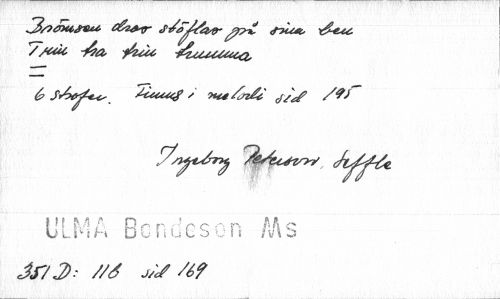 Brömsen drog stöflar på sina ben
Trin tra trin trumma
=
6 strofer. Finns i melodi sid 195
Ingeborg Peterson, Seffle
ULMA Bondeson Ms
351 D: 11B sid 169